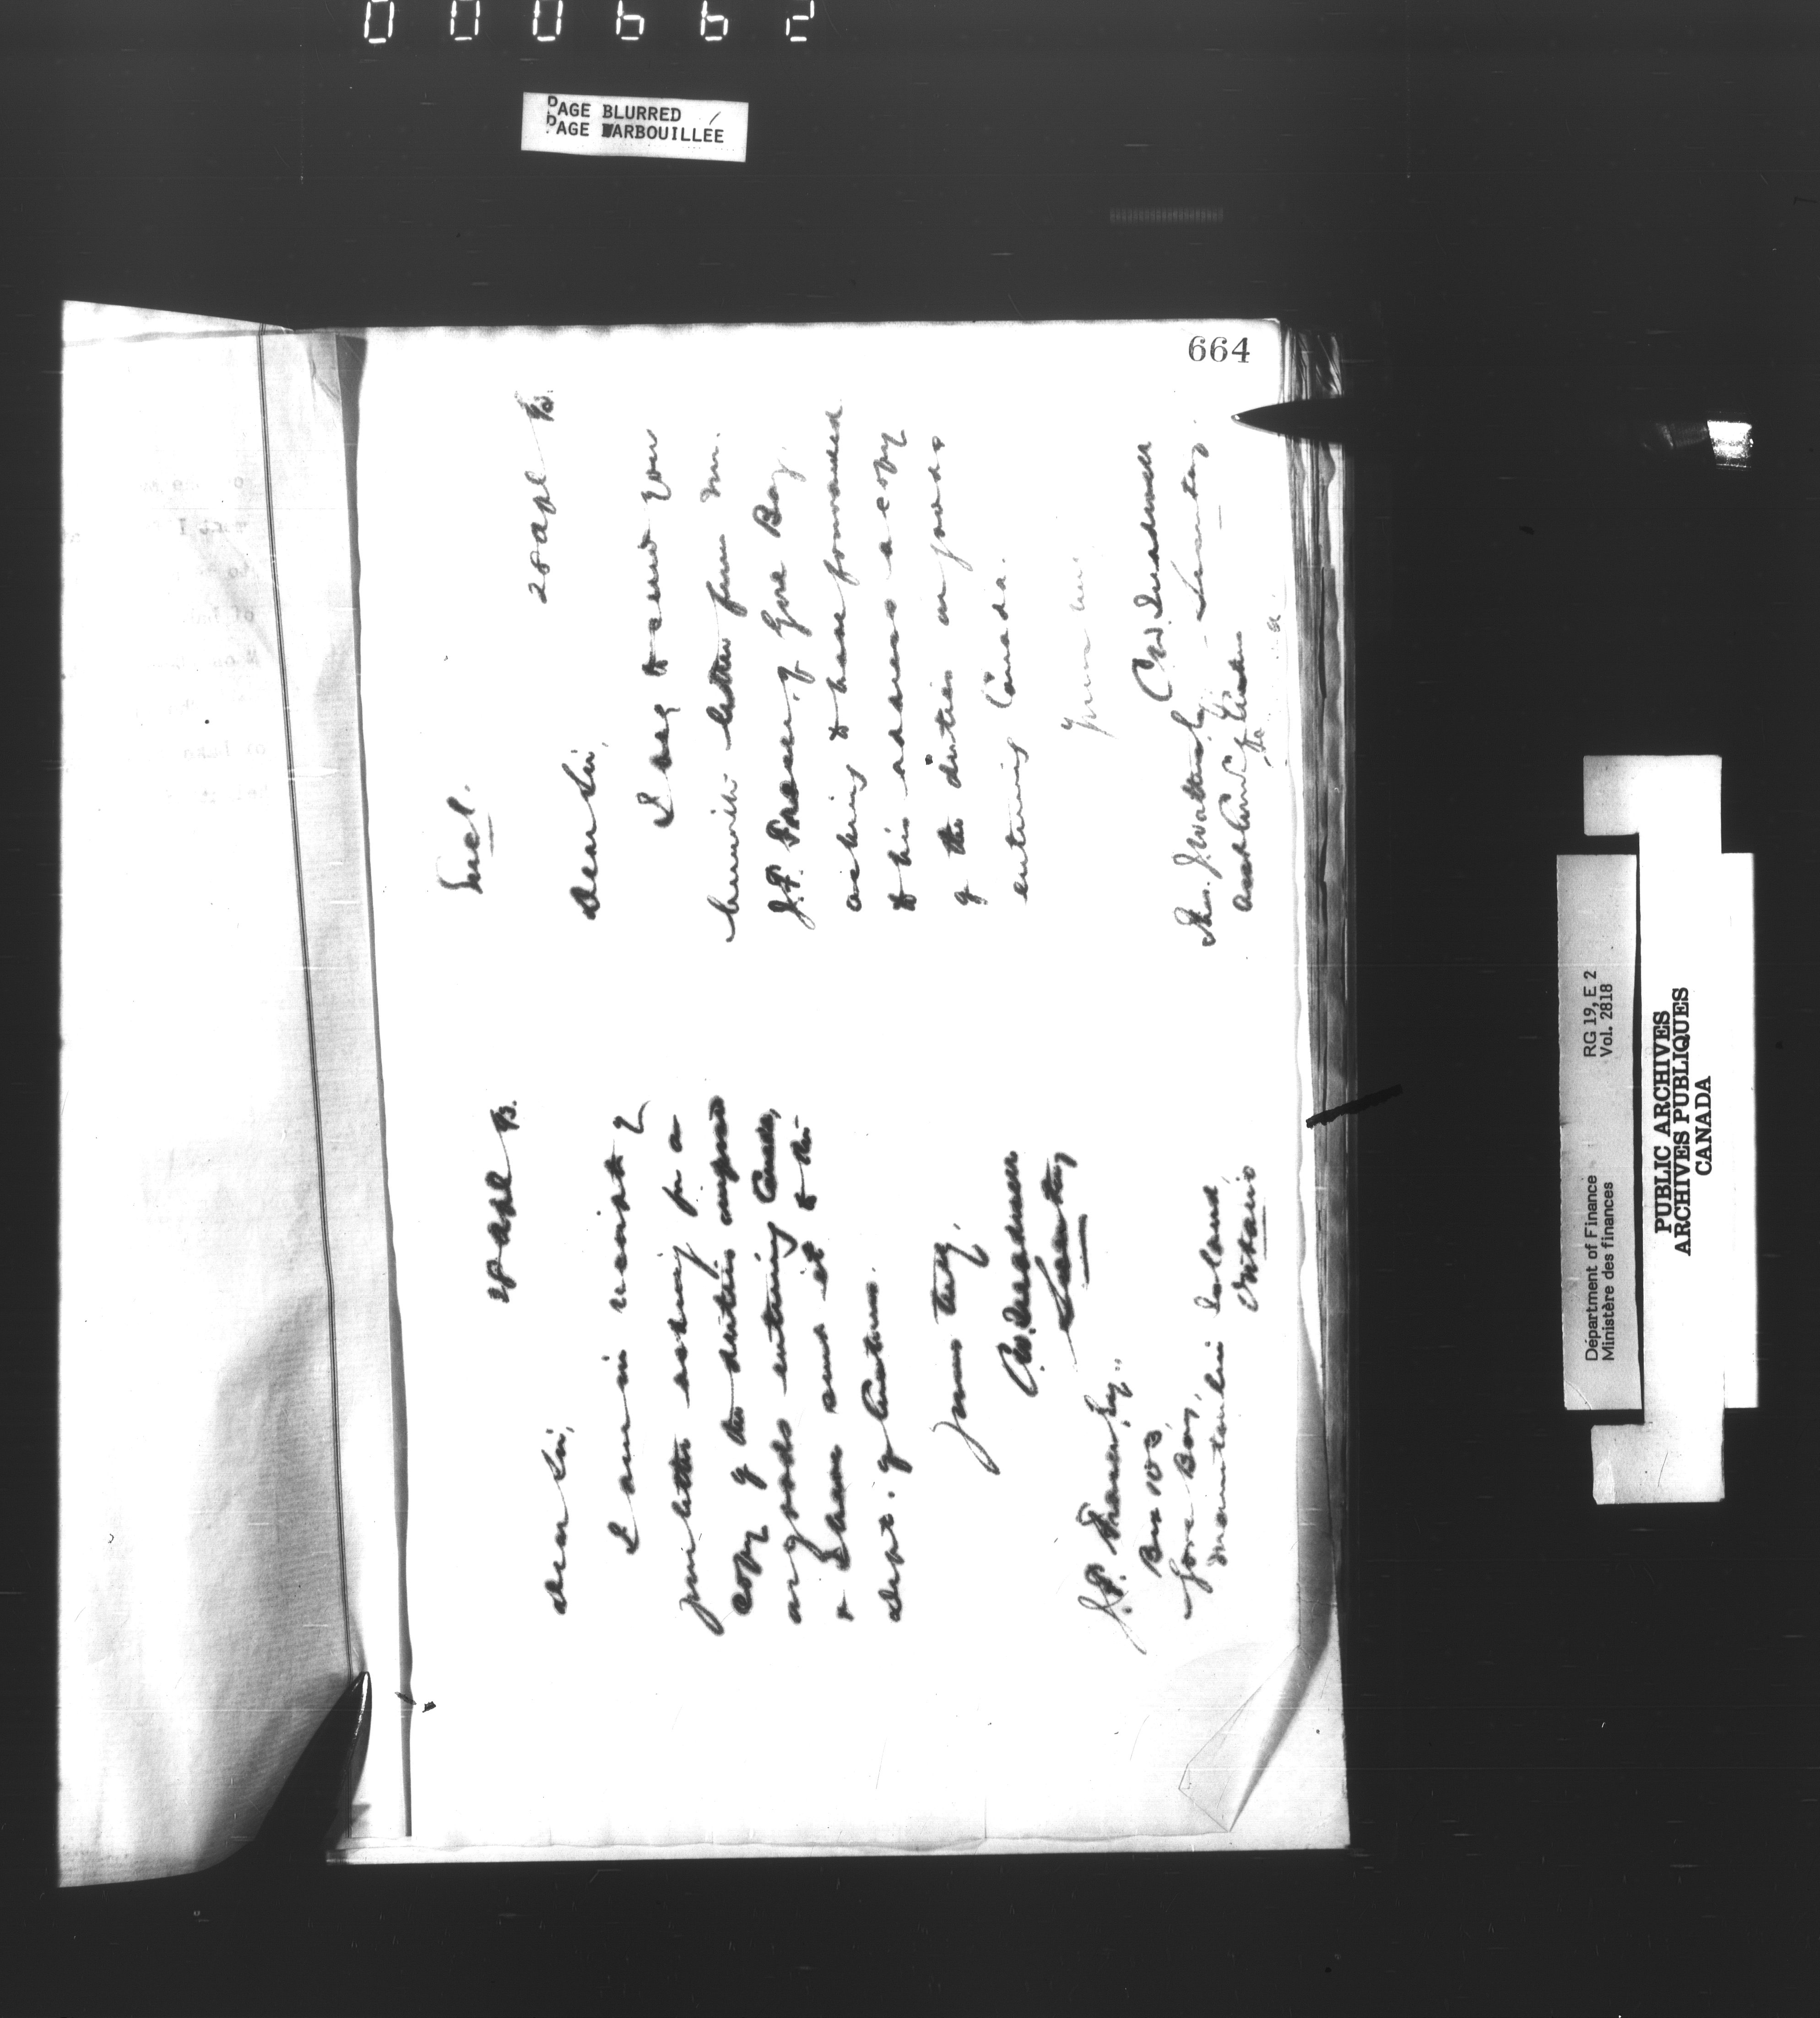 000662
PAGE BLURRED
PAGE BARBOUILLÉE
664
28 Apl 93.
Dear Sir,
I am in receipt of
your letter asking for a
copy of the duties imposed
on goods entering Canada,
& have sent it to the
Dept. of Customs.
Yours truly,
Secretary
J.P. Fraser Esq.,
Box 103,
Gore Bay,
Manitoulin Island
Ontario
Incl.
28 Apl 93.
Dear Sir,
I beg to send you
herewith letter from Mr.
J.P. Fraser, of Gore Bay,
asking to have forwarded
to his address a copy
of the duties on goods
entering Canada.
Yours
Secretary.
Thos. J. Watters Esq
Asst Com of Customs
Department of Finance RG 19, E 2
Ministère des finances Vol. 2818
PUBLIC ARCHIVES
ARCHIVES PUBLIQUES
CANADA